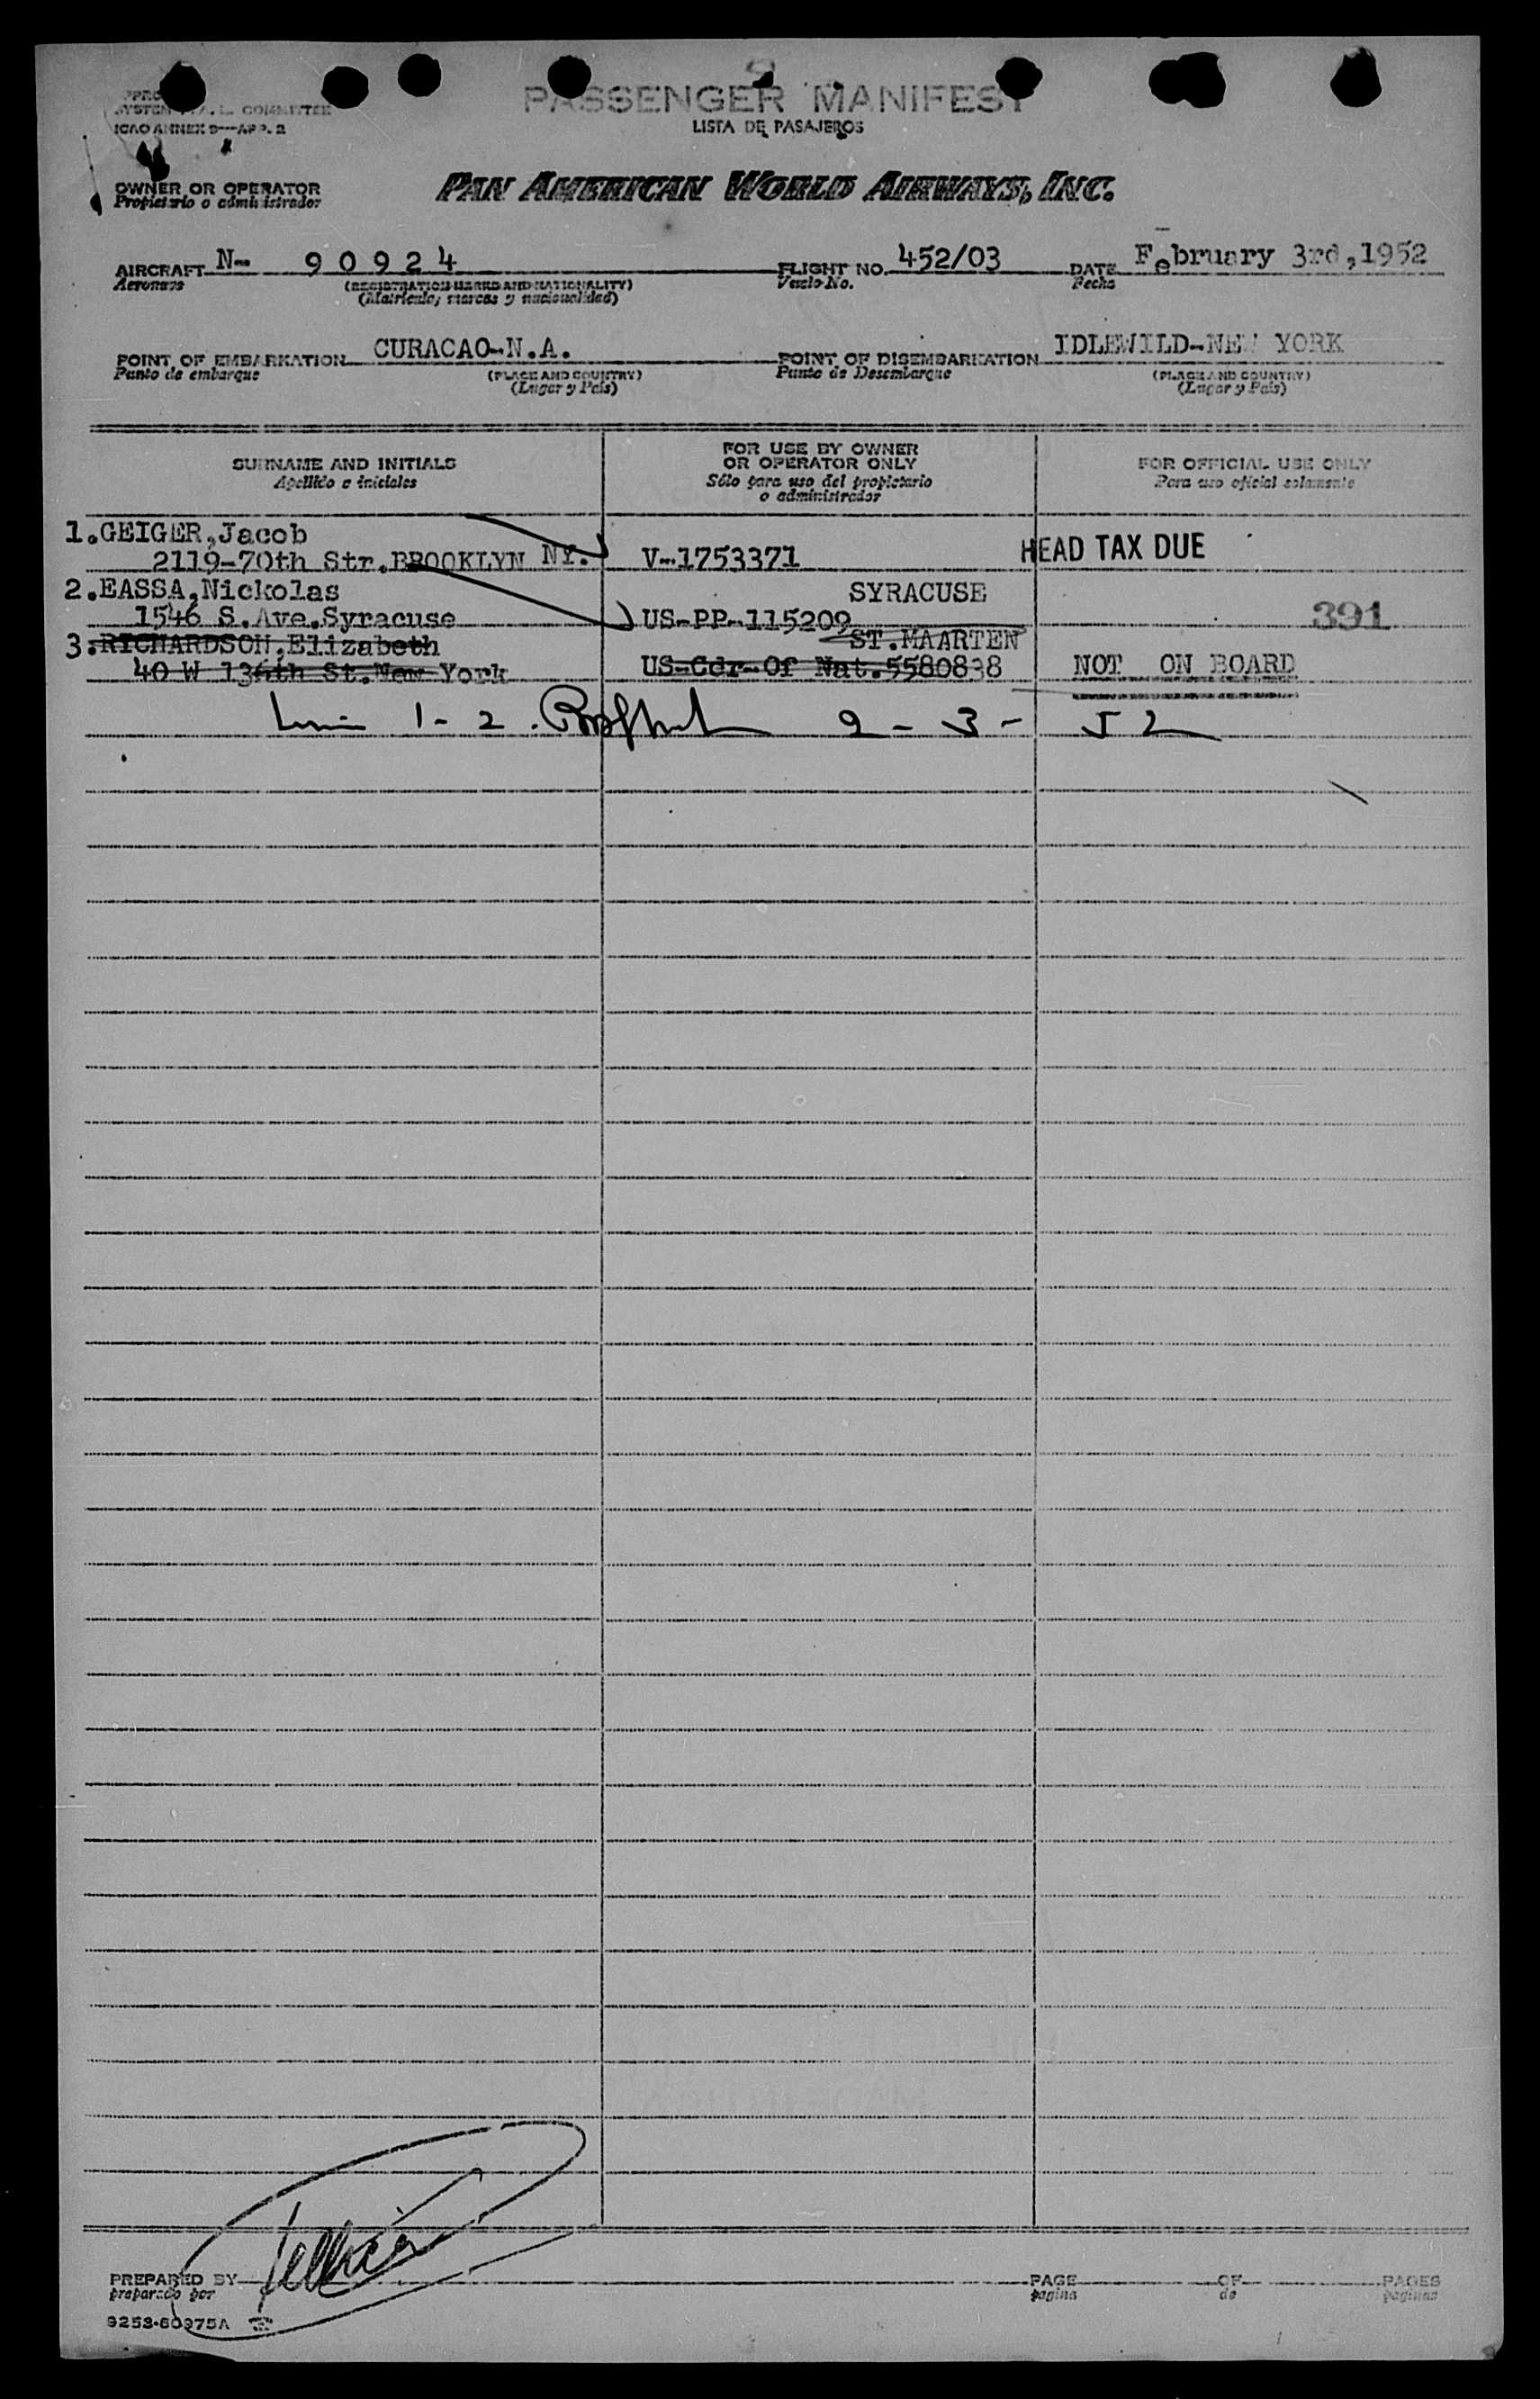 9
PASSENGER MANIFEST
COMMITTEE
ICAO ANNEX 9—APP. 2
LISTA DE PASAJEROS
OWNER OR OPERATOR
Propietario o administrador
PAN AMERICAN WORLD AIRWAYS, INC.
AIRCRAFT N- 90924 FLIGHT NO. 452/03 DATE February 3rd,1952
Aeronave (REGISTRATION MARKS AND NATIONALITY) Vuelo No. Fecha
(Matrícula, marcas y nacionalidad)
POINT OF EMBARKATION CURACAO-N.A. POINT OF DISEMBARKATION IDLEWILD-NEW YORK
Punto de embarque (PLACE AND COUNTRY) Punto de Desembarque (PLACE AND COUNTRY)
(Lugar y País) (Lugar y País)
SURNAME AND INITIALS
Apellido e iniciales
FOR USE BY OWNER
OR OPERATOR ONLY
Sólo para uso del propietario
o administrador
FOR OFFICIAL USE ONLY
Para uso oficial solamente
1.GEIGER,Jacob
2119-70th Str.BROOKLYN NY. V-1753371 HEAD TAX DUE
2.EASSA,Nickolas SYRACUSE
1546 S.Ave.Syracuse US-PP-115209 391
3.RICHARDSON,Elizabeth ST.MAARTEN
40 W 136th St.New York US-Cdr-Of Nat.5580838 NOT ON BOARD
1-2. 2-3-52
PREPARED BY PAGE OF PAGES
preparado por pagina de paginas
9253-60975A